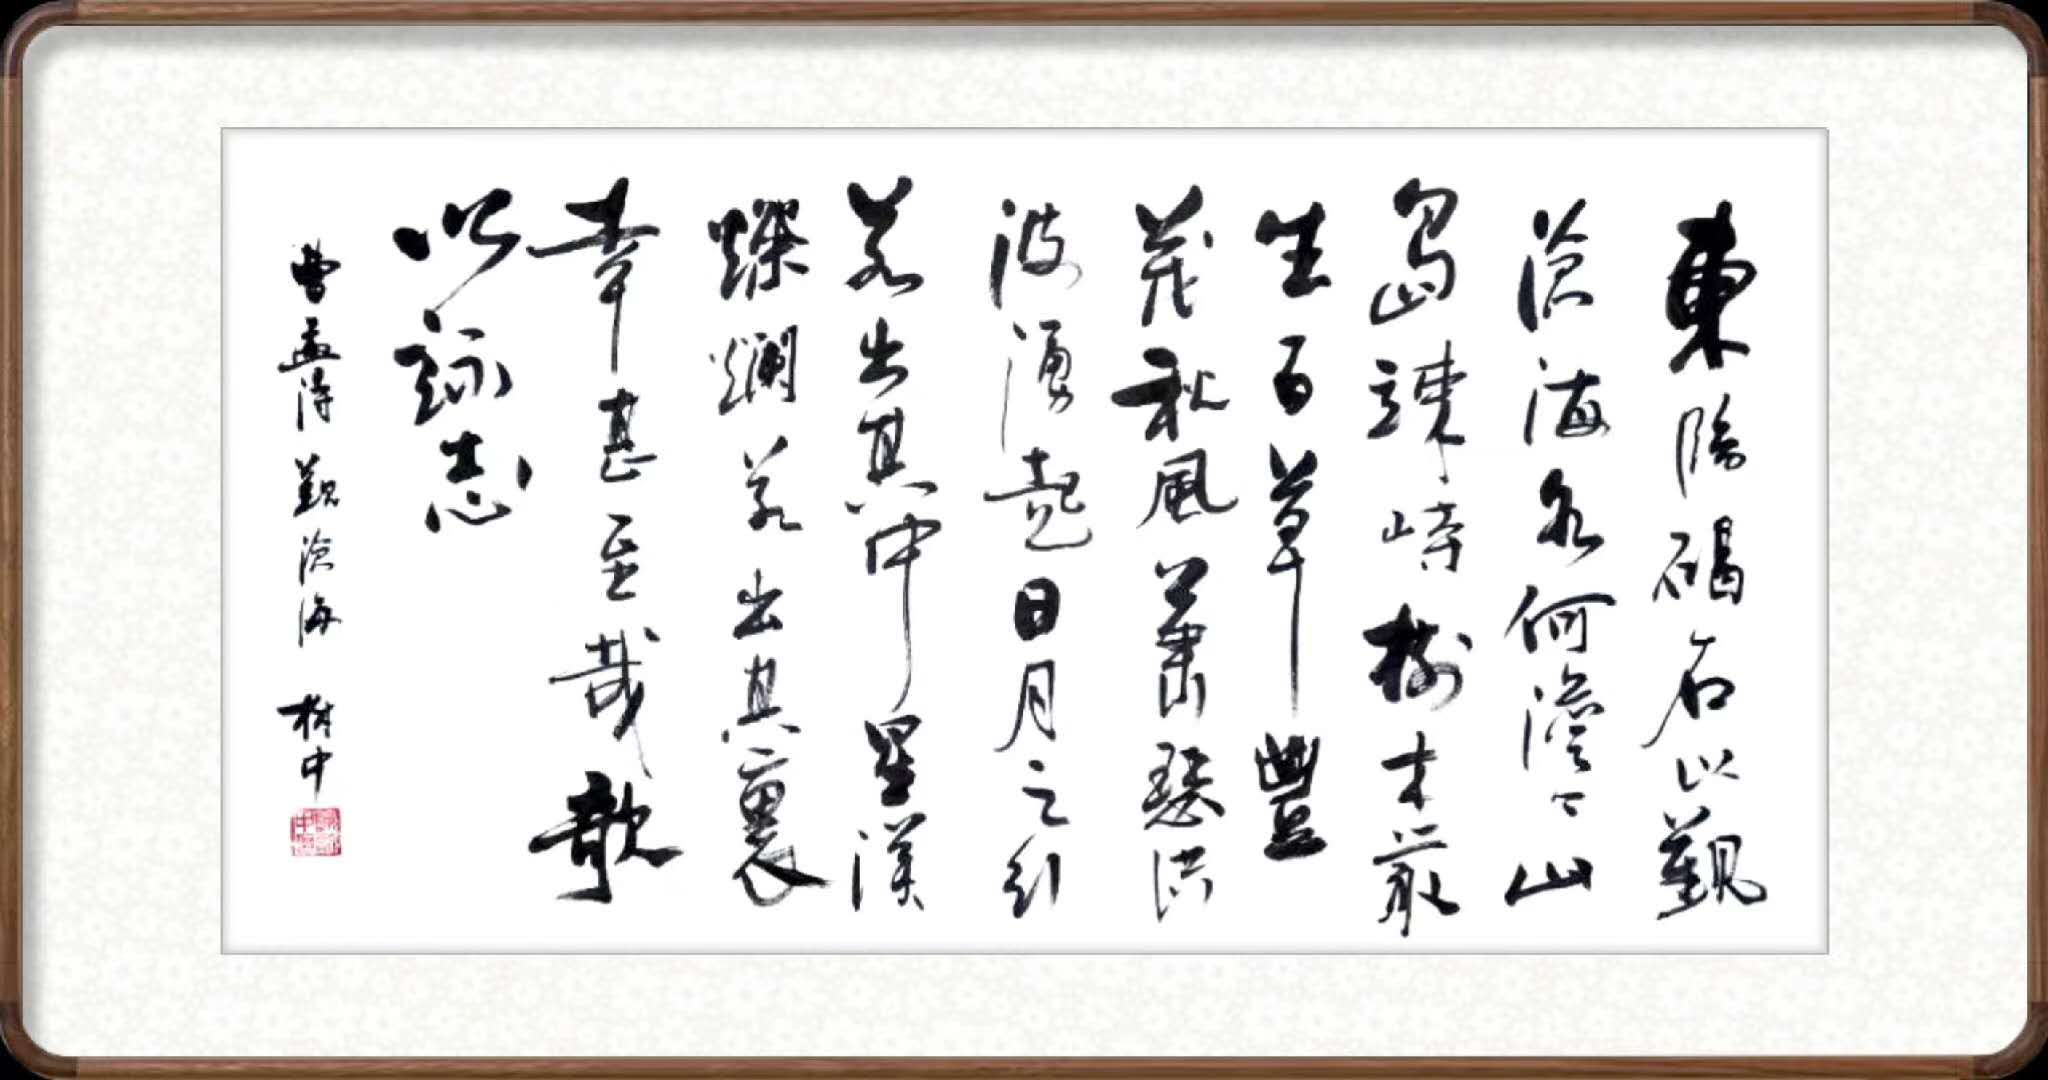 東臨碣石以觀
滄海水何澹々山
島竦峙樹木叢
生百草豐
茂秋風蕭瑟洪
波湧起日月之行
若出其中星漢
燦爛若出其裏
幸甚至哉歌
以詠志
曹孟德觀滄海 中